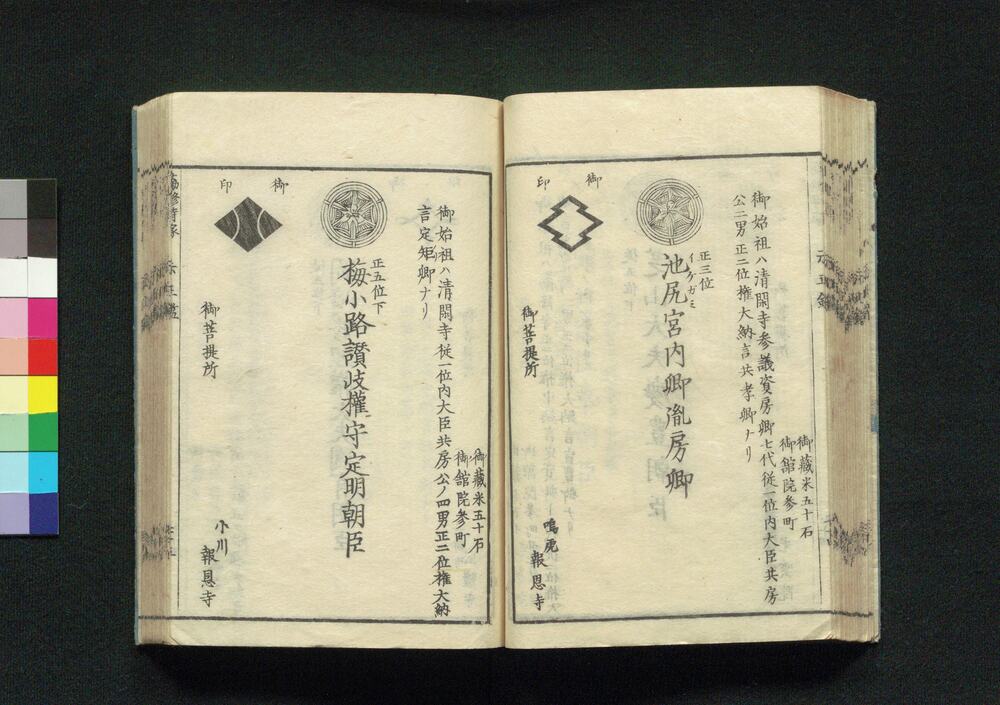 御藏米五十石
御館院参町
御始祖ハ清閑寺参議資房卿七代従一位内大臣共房
公二男正二位権大納言共孝卿ナリ
正三位
イケガミ
池尻宮内卿胤房卿
御印
御菩提所
鳴虎
報恩寺
御藏米五十石
御館院参町
御始祖ハ清閑寺従一位内大臣共房公ノ四男正二位権大納
言定矩卿ナリ
正五位下
梅小路讃岐權守定明朝臣
御印
御菩提所
小川
報恩寺